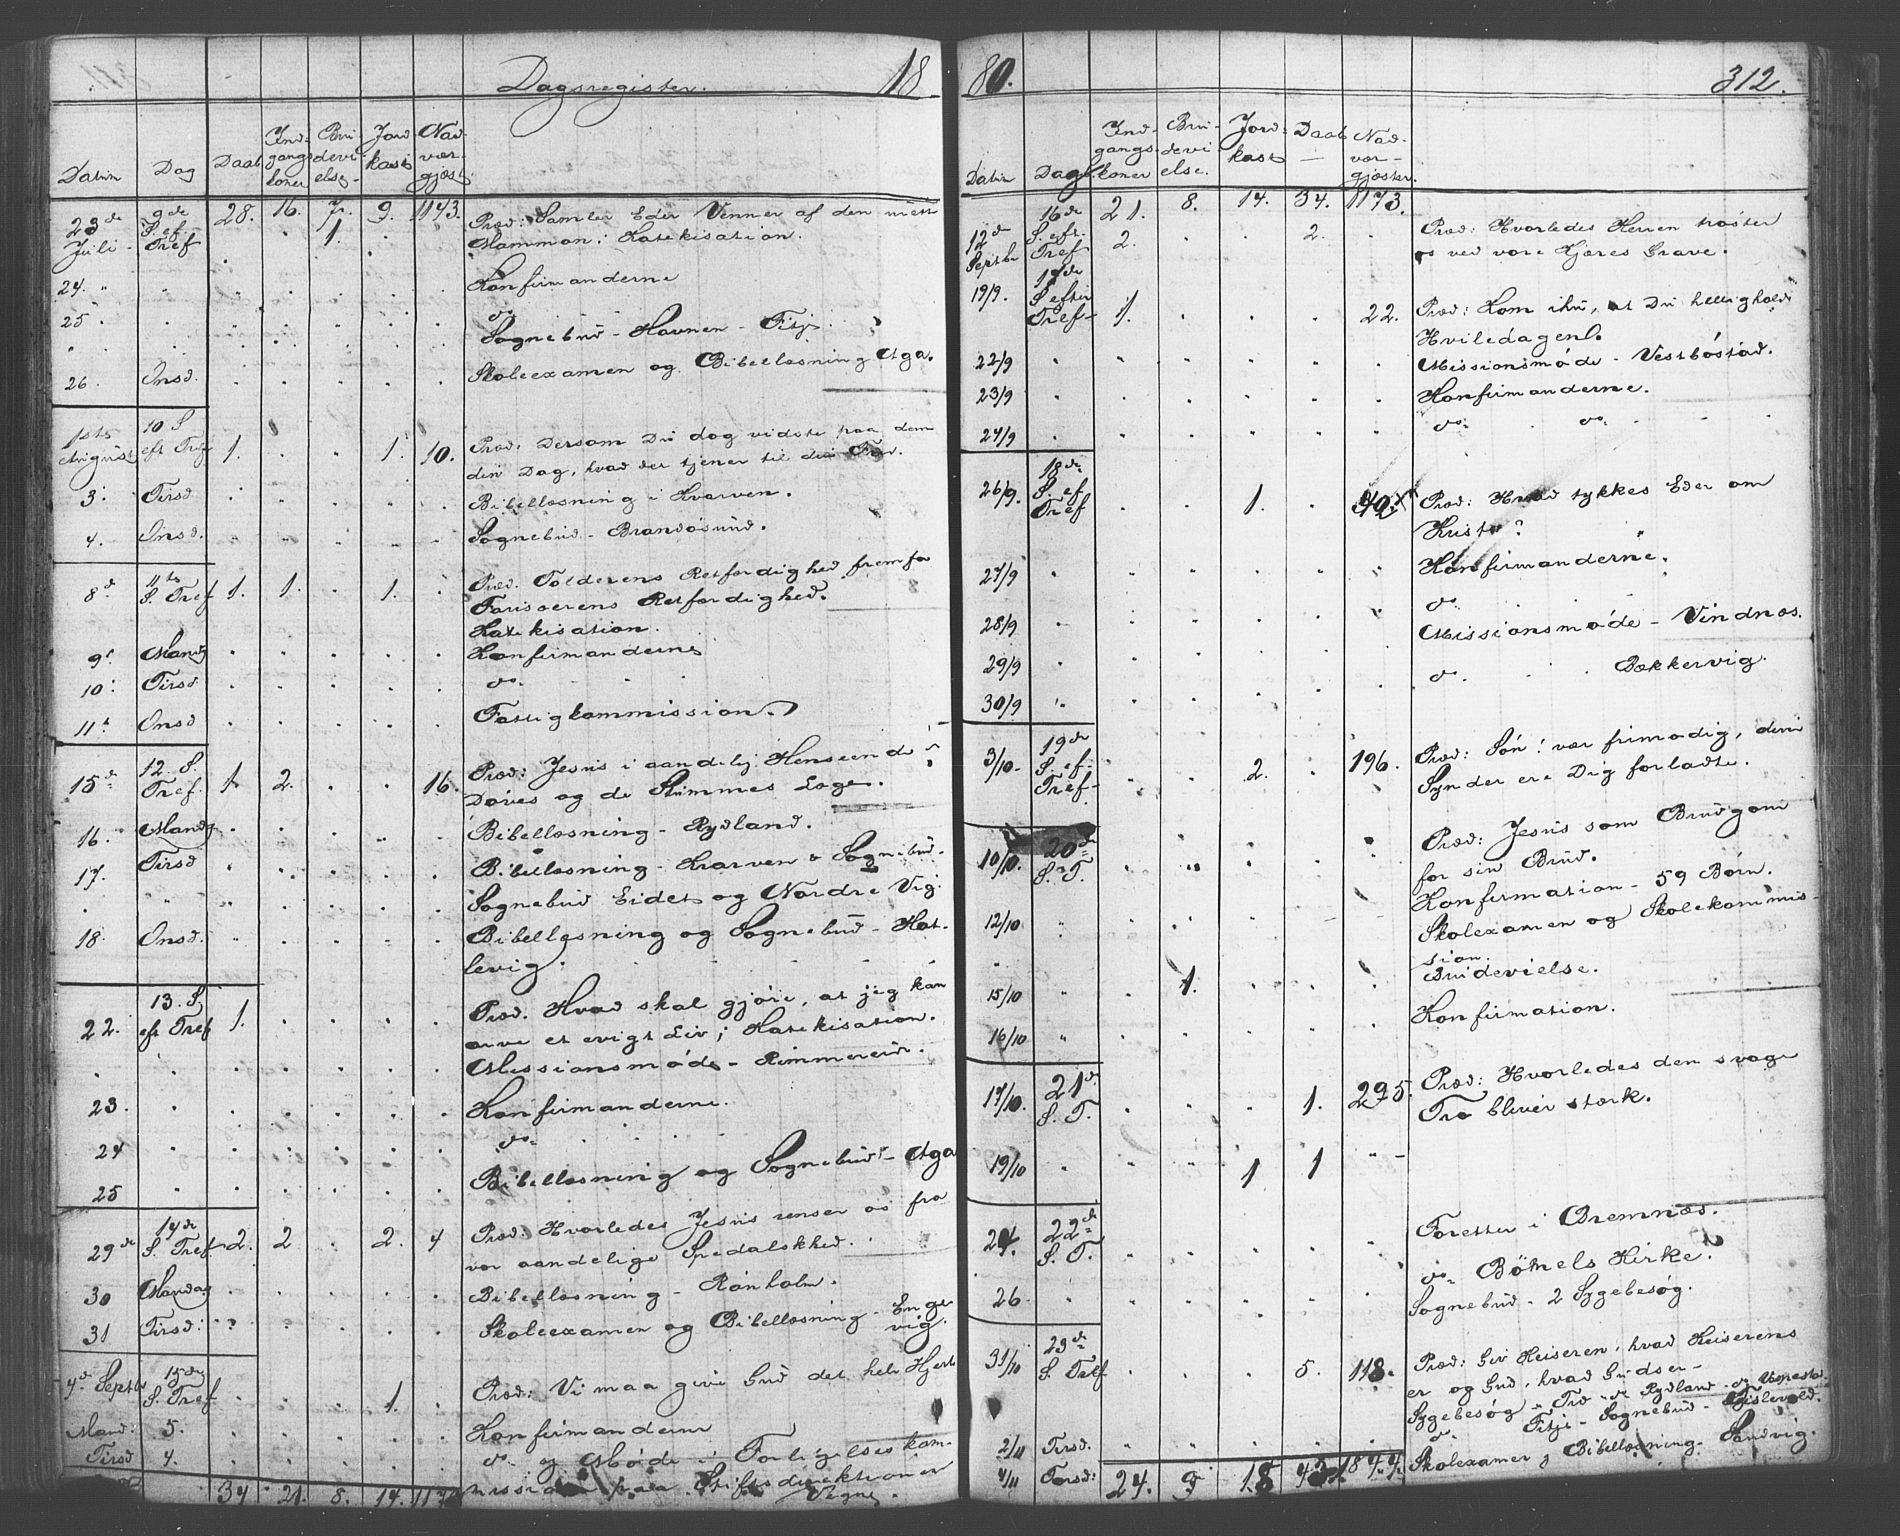 Dagsregister. 18
Datum Dag Daab Ind- gangs koner Bru devi- else Jord kast Nad- vær- gjæst
23de Juli 9de S. ef. Tref 28. 16. 7. 9. 1143. Præd: Samler Eder Venner af den urett
1. Mammon; Katekisation.
24. " Konfirmanderne
25 " do
" Sognebud - Havnen - Fitje.
26. Onsd. Skoleexamen og Bibellæsning Aga.
1ste August 10 S eft Tref 1. 1. 10. Præd. Dersom Du dog vidste paa denne
din Dag, hvad der tjener til din Fred.
3. Tirsd Bibellæsning i Kvarven.
4. Onsd. Sognebud - Brandøsund.
8de 11te S. Tref 1. 1. 1. Præd. Tolderens Retfærdighed fremfor
Farisæerens Retfærdighed.
Katekisation.
9. Mandg Konfirmanderne
10. Tirsd. do
11. Onsd Fattigkommission.
15de 12. S. Tref. 1. 2. 16. Præd: Jesus i aandelig Henseende de
Døves og de Stummes Læge.
16. Mandg Bibellæsning - Rydland.
17. Tirsd Bibellæsning - Kvarven & Sognebud.
" Sognebud Eidet og Nordre Vig.
18. Onsd. Bibellæsning og Sognebud - Kat-
levig.
22. 13. S. eft Tref 1. Præd. Hvad skal gjøre, at jeg kan
arve et evigt Liv; Katekisation.
Missionsmøde - Rimmereid.
23. Konfirmanderne.
24 do
25 Bibellæsning og Sognebud - Aga
29de 14de S. Tref 2. 2 2. 4 Præd: Hvorledes Jesus renser os fra
vor aandelige Spedalskhed.
30 Mandag Bibellæsning - Rønholm.
31 Tirsd: Skoleexamen og Bibellæsning - Enge-
vig.
4de Septbr 15de S. Tref 1. Præd: Vi maa give Gud det hele Hjerte
Mand: 5. Konfirmanderne
Tirsd 4. do og Møde i Forligelseskom-
34 21. 8. 14. mission paa Stiftsdirektionens
Vegne.
80. 312.
Datum Dag Ind- gangs- koner Bru- devi else. Jord- kast Daab Nad- vær- gjæster.
16de 21. 8. 14. 34. 1173.
12te Septbr S. eftr. Tref 2. 2. Præd: Hvorledes Herren trøster
os ved vore Kjæres Grave.
19/9. 17de S. efter Tref- 1. 22. Præd: Kom ihu, at Du helligholde
Hviledagen.
22/9 Missionsmøde - Vestbøstad.
23/9 Konfirmanderne.
24/9 do do
26/9. 18de S. ef. Tref 1. Præd: Hvad tykkes Eder om
Kristo?
27/9 Konfirmanderne.
28/9 do
29/9 Missionsmøde - Vindnæs.
30/9 do Bækkervig.
3/10. 19de S. ef. Tref- 2. 196. Præd: Søn! vær frimodig, dine
Synder ere Dig forladte.
10/10. 20de S. T. Præd: Jesus som Brudgom
for sin Brud.
Konfirmation - 59 Børn.
12/10 Skolexamen og Skolekommis-
sion.
15/10 1. Brudevielse.
16/10 Konfirmation.
17/10. 21de S. T. 1. 295. Præd: Hvorledes den svage
Tro bliver stærk.
19/10 1 1
24. 22de S. T. Foretter i Bremnæs.
do Bømels Kirke.
26 Sognebud - 2 Sygebesøg.
31/10 23de S. Tref 5. 118. Præd: Giv Keiseren, hvad Keiserens
er og Gud, hvad Guds er -
Sygebesøg - Rydland -
do Fitje - Sognebud - Tislevold.
2/11 Tirsd. Skolexamen & Bibellæsning - Sandvig.
4/11 Torsd: 24. 9 18 43 1844.